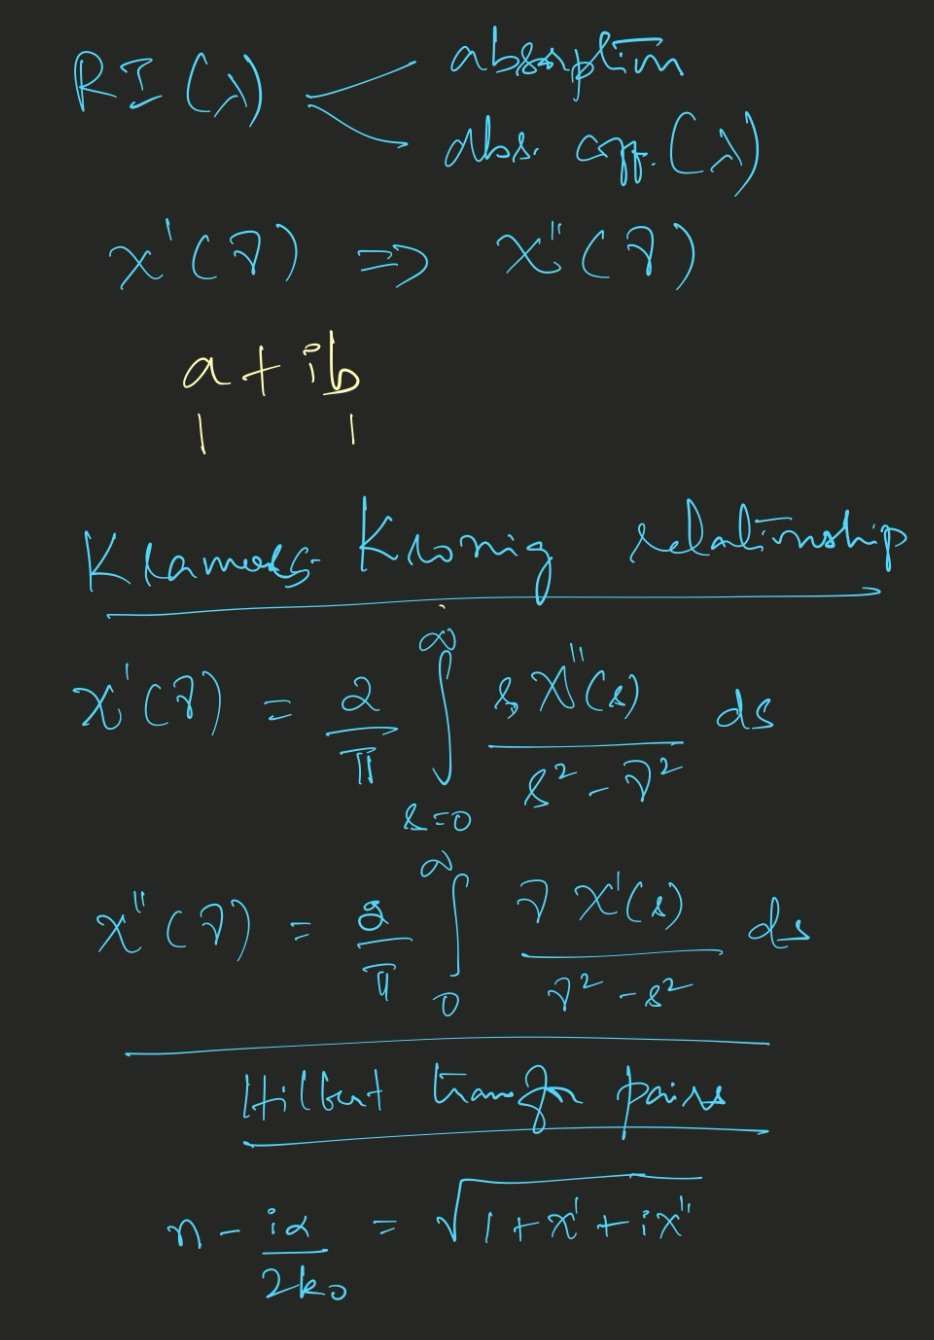 RI(λ) < absorption
abs. coff.(λ)
χ'(ν) ⇒ χ''(ν)
a + ib
Kramers-Kronig relationship
χ'(ν) = 2/π ∫_{s=0}^{∞} s χ''(s) / (s² - ν²) ds
χ''(ν) = 2/π ∫_{0}^{∞} ν χ'(s) / (ν² - s²) ds
Hilbert transfor pairs
n - iα/2k₀ = √(1 + χ' + iχ'')